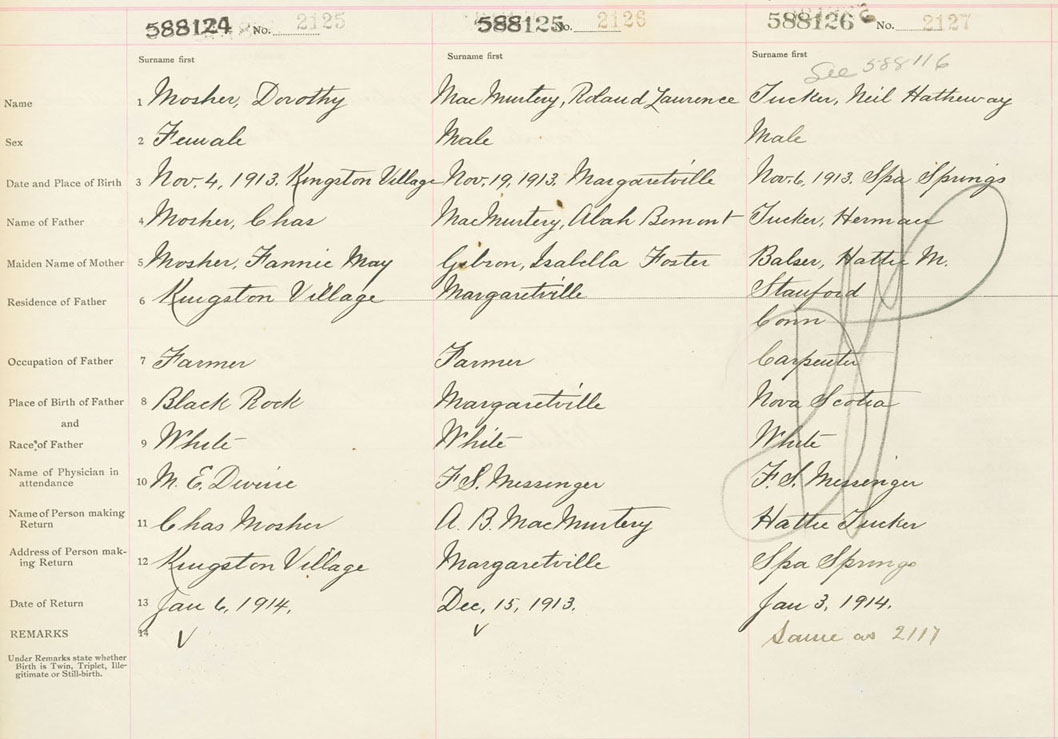 588124 No. 2125 588125 No. 2126 588126 No. 2127
Surname first Surname first Surname first
See 588116
Name 1 Mosher, Dorothy MacMurtery, Roland Laurence Tucker, Neil Hatheway
Sex 2 Female Male Male
Date and Place of Birth 3 Nov. 4, 1913. Kingston Village Nov. 19, 1913. Margaretville Nov. 6, 1913. Spa Springs
Name of Father 4 Mosher, Chas MacMurtery, Alah Bomont Tucker, Herman
Maiden Name of Mother 5 Mosher, Fannie May Isabella Foster Balser, Hattie M.
Residence of Father 6 Kingston Village Margaretville Stanford
Conn
Occupation of Father 7 Farmer Farmer Carpenter
Place of Birth of Father 8 Black Rock Margaretville Nova Scotia
and
Race of Father 9 White White White
Name of Physician in
attendance 10 M. E. Divine F. S. Messenger F. S. Messinger
Name of Person making
Return 11 Chas Mosher A. B. MacMurtery Hattie Tucker
Address of Person mak-
ing Return 12 Kingston Village Margaretville Spa Springs
Date of Return 13 Jan 6, 1914. Dec, 15, 1913. Jan 3, 1914.
REMARKS 14 V V Same as 2117
Under Remarks state whether
Birth is Twin, Triplet, Ille-
gitimate or Still-birth.